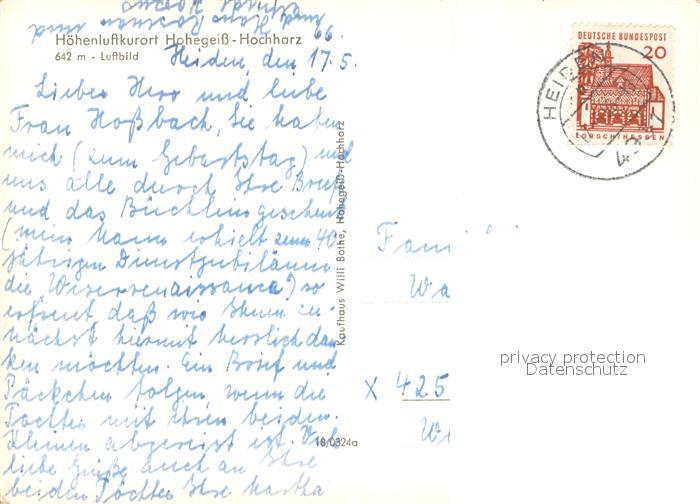 Höhenluftkurort Hohegeiß-Hochharz
642 m - Luftbild
Heiden, den 17.5. 66.
Lieber Herr und liebe
Frau Hoßbach, Sie haben
mich (zum Geburtstag) und
uns alle durch Ihre Briefe
und das Büchleingeschenk
(mein Mann erhielt zum 40
jährigen Dienstjubiläum
die Weserrenaissance) so
erfreut, daß wir Ihnen zu-
nächst hiermit herzlich dan-
ken möchten. Ein Brief und
Päckchen folgen, wenn die
Tochter mit ihren beiden
Kleinen abgereist ist. Viele
liebe Grüße auch an Ihre
beiden Töchter Ihre Martha
und Hans und
Kaufhaus Willi Bothe, Hohegeiß-Hochharz
18/0324a
DEUTSCHE BUNDESPOST
20
LORSCH/HESSEN
HEIDEN
Fami
Wa
X 425
privacy protection
Datenschutz